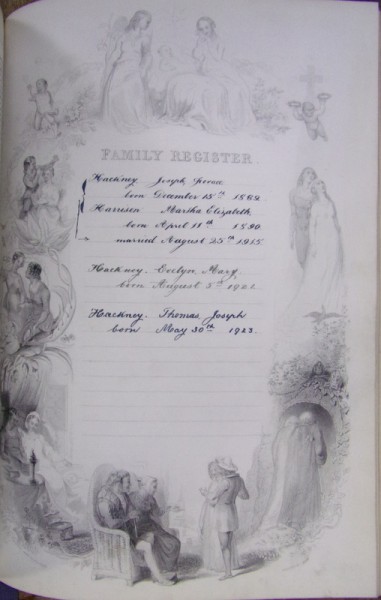 FAMILY REGISTER.
Hackney Joseph,
born December 15th 1889.
Harrison Martha Elizabeth,
born April 11th 1890.
married August 25th 1915.
Hackney. Evelyn, Mary.
born August 5th 1921.
Hackney. Thomas, Joseph
born May 30th 1923.